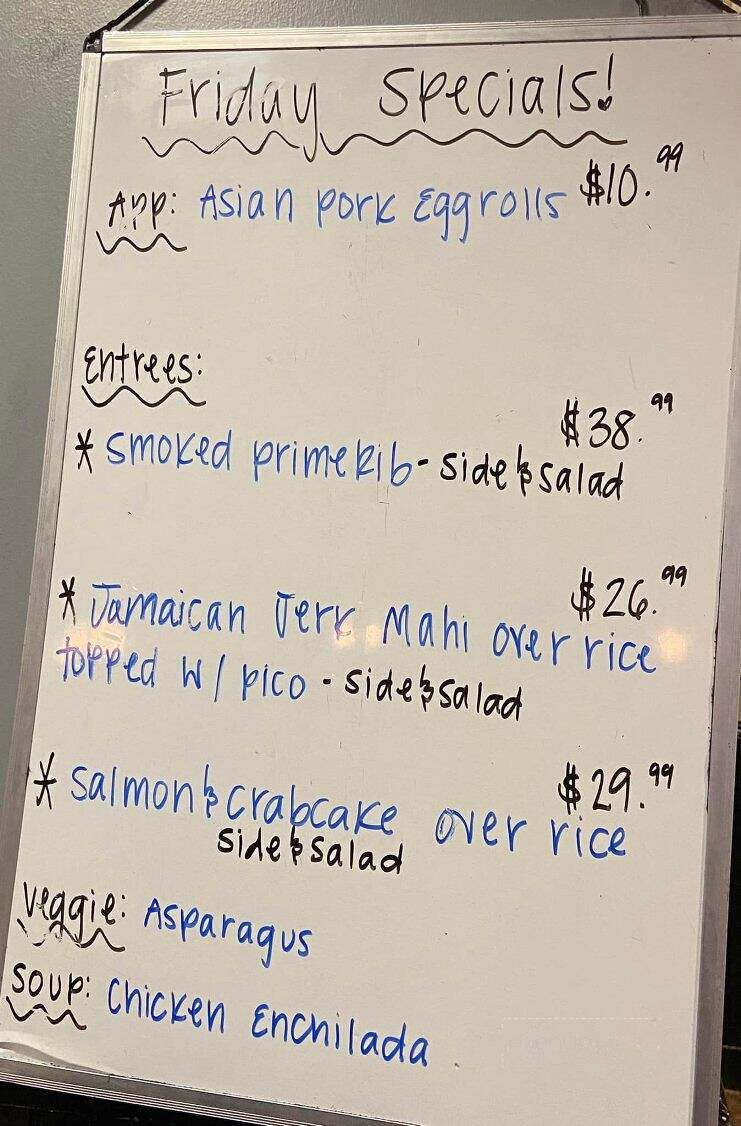 Friday Specials!
App: Asian pork Eggrolls $10.99
Entrees:
$38.99
* Smoked primeRib - side & salad
$26.99
* Jamaican Jerk Mahi over rice
topped w/ pico - side & salad
$29.99
* Salmon & crabcake over rice
side & salad
Veggie: Asparagus
Soup: Chicken Enchilada